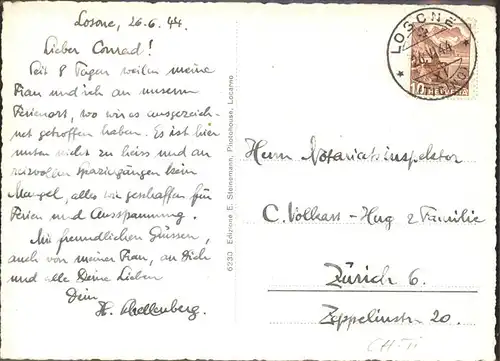 Losone, 26.6.44.
Lieber Conrad!
Seit 8 Tagen weilen meine
Frau und ich an unserem
Ferienort, wo wir es ausgezeich-
net getroffen haben. Es ist hier
unten nicht zu heiss und an
reizvollen Spaziergängen kein
Mangel, alles wie geschaffen für
Ferien und Ausspannung.
Mit freundlichen Grüssen,
auch von meiner Frau, an Dich
und alle Deine Lieben
Dein
H. Schellenberg.
6233 Edizione E. Steinemann, Photohouse, Locarno
LOSONE
26.VI.44
XI
(TICINO)
Herrn Notariatsinspektor
C. Volkart-Hug & Familie
Zürich 6.
Zeppelinstr 20.
CH-TI